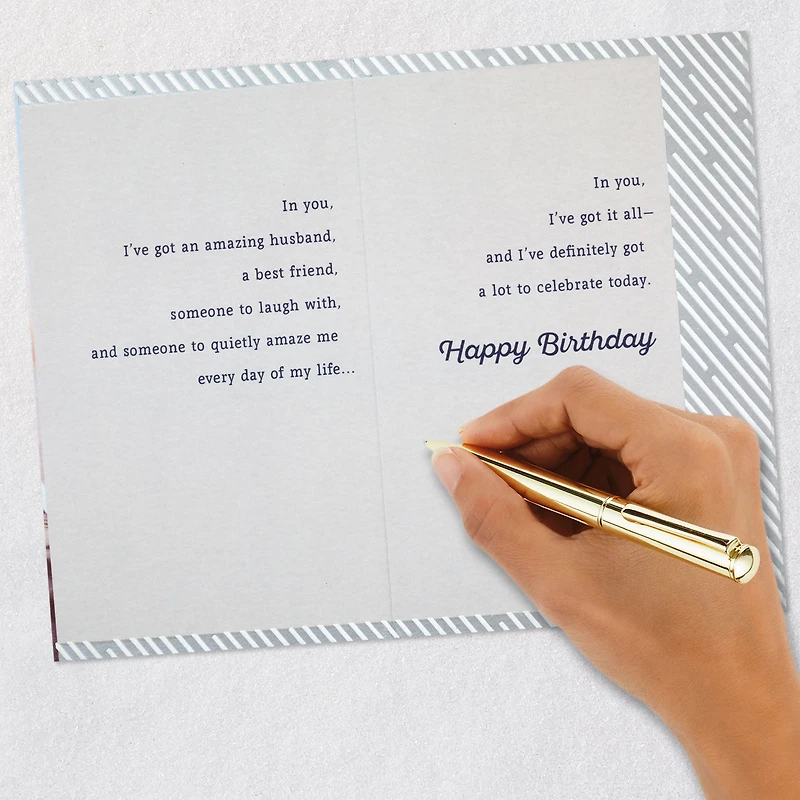 In you,
I've got an amazing husband,
a best friend,
someone to laugh with,
and someone to quietly amaze me
every day of my life...
In you,
I've got it all—
and I've definitely got
a lot to celebrate today.
Happy Birthday